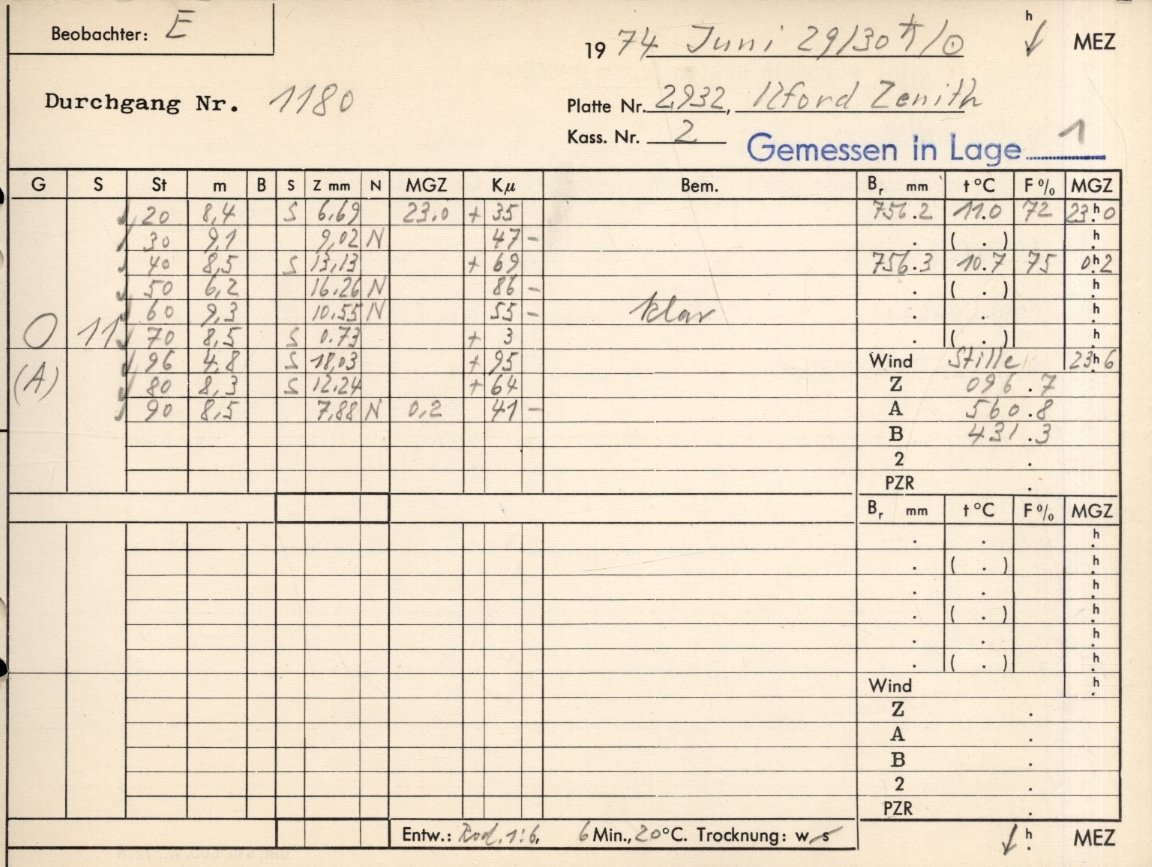 Beobachter: E
1974 Juni 29/30 ♄/☉ h MEZ
Durchgang Nr. 1180
Platte Nr. 2932, Ilford Zenith
Kass. Nr. 2
Gemessen in Lage 1
G S St m B S Z mm N MGZ Kμ Bem. Br mm t °C F % MGZ
20 8,4 S 6,69 23,0 + 35 756.2 11.0 72 23h0
30 9,1 9,02 N 47 – . ( . ) h
40 8,5 S 13,13 + 69 756.3 10.7 75 0h2
50 6,2 16,26 N 86 – . ( . ) h
O 11 60 9,3 10,55 N 55 – klar . . h
70 8,5 S 0.73 + 3 . ( . ) h
(A) 96 4,8 S 18,03 + 95 Wind Stille 23h6
80 8,3 S 12,24 + 64 Z 096.7
90 8,5 7,88 N 0,2 41 – A 560.8
B 431.3
2 .
PZR .
Br mm t °C F % MGZ
. . h
. ( . ) h
. . h
. ( . ) h
. . h
. ( . ) h
Wind h
Z .
A .
B .
2 .
PZR .
Entw.: Rod. 1:6, 6 Min., 20°C. Trocknung: w s h MEZ